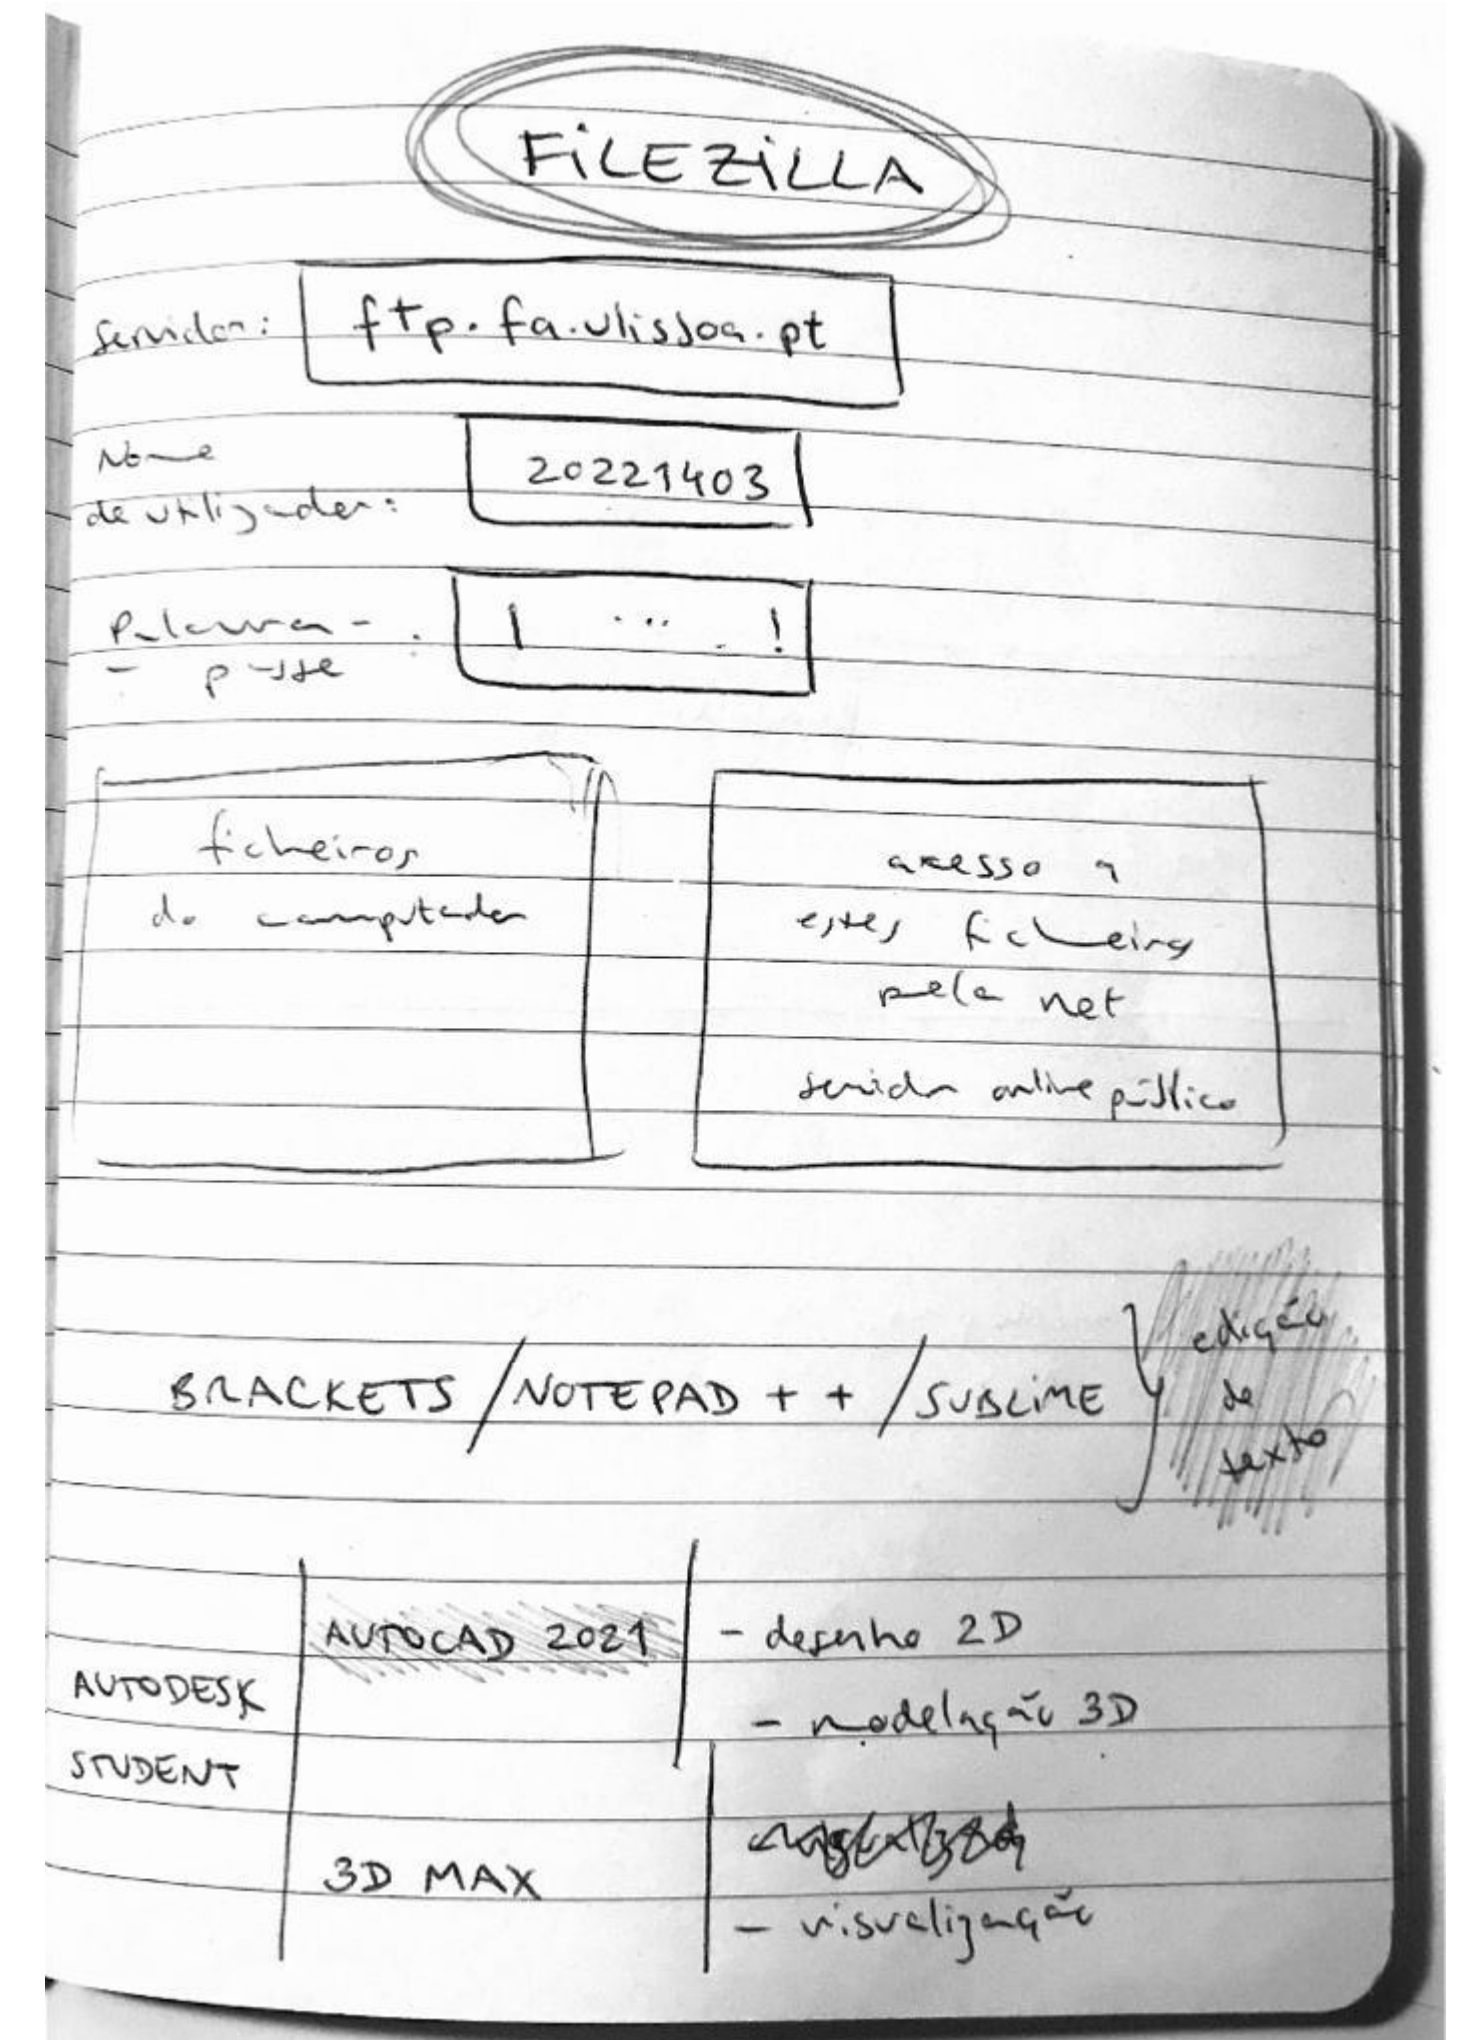 FiLEZiLLA
Servidor: ftp.fa.ulisboa.pt
Nome
de utilizador: 20221403
Palavra- : | ... . !
- passe
ficheiros
do computador
acesso a
estes ficheiros
pela net
servidor online público
BRACKETS / NOTEPAD + + / SUBLiME } edição
de
texto
AUTOCAD 2021 - desenho 2D
AUTODESK
- modelação 3D
STUDENT
3D MAX
- visualização